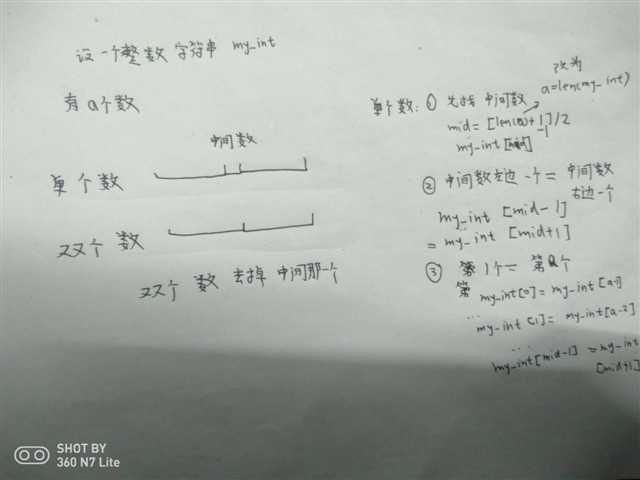 设一个整数字符串 my_int
有a个数
中间数
单个数
双个 数
双个 数 去掉 中间那一个
改为
a=len(my_int)
单个数: ① 先找 中间数
mid = [len(a)+1]/2
-1
my_int
② 中间数左边一个 = 中间数
右边一个
my_int [mid-1]
= my_int [mid+1]
③ 第1个 = 第a个
第 my_int[0] = my_int[a-1]
... my_int[1] = my_int[a-2]
...
my_int[mid-1] = my_int
[mid+1]
SHOT BY
360 N7 Lite